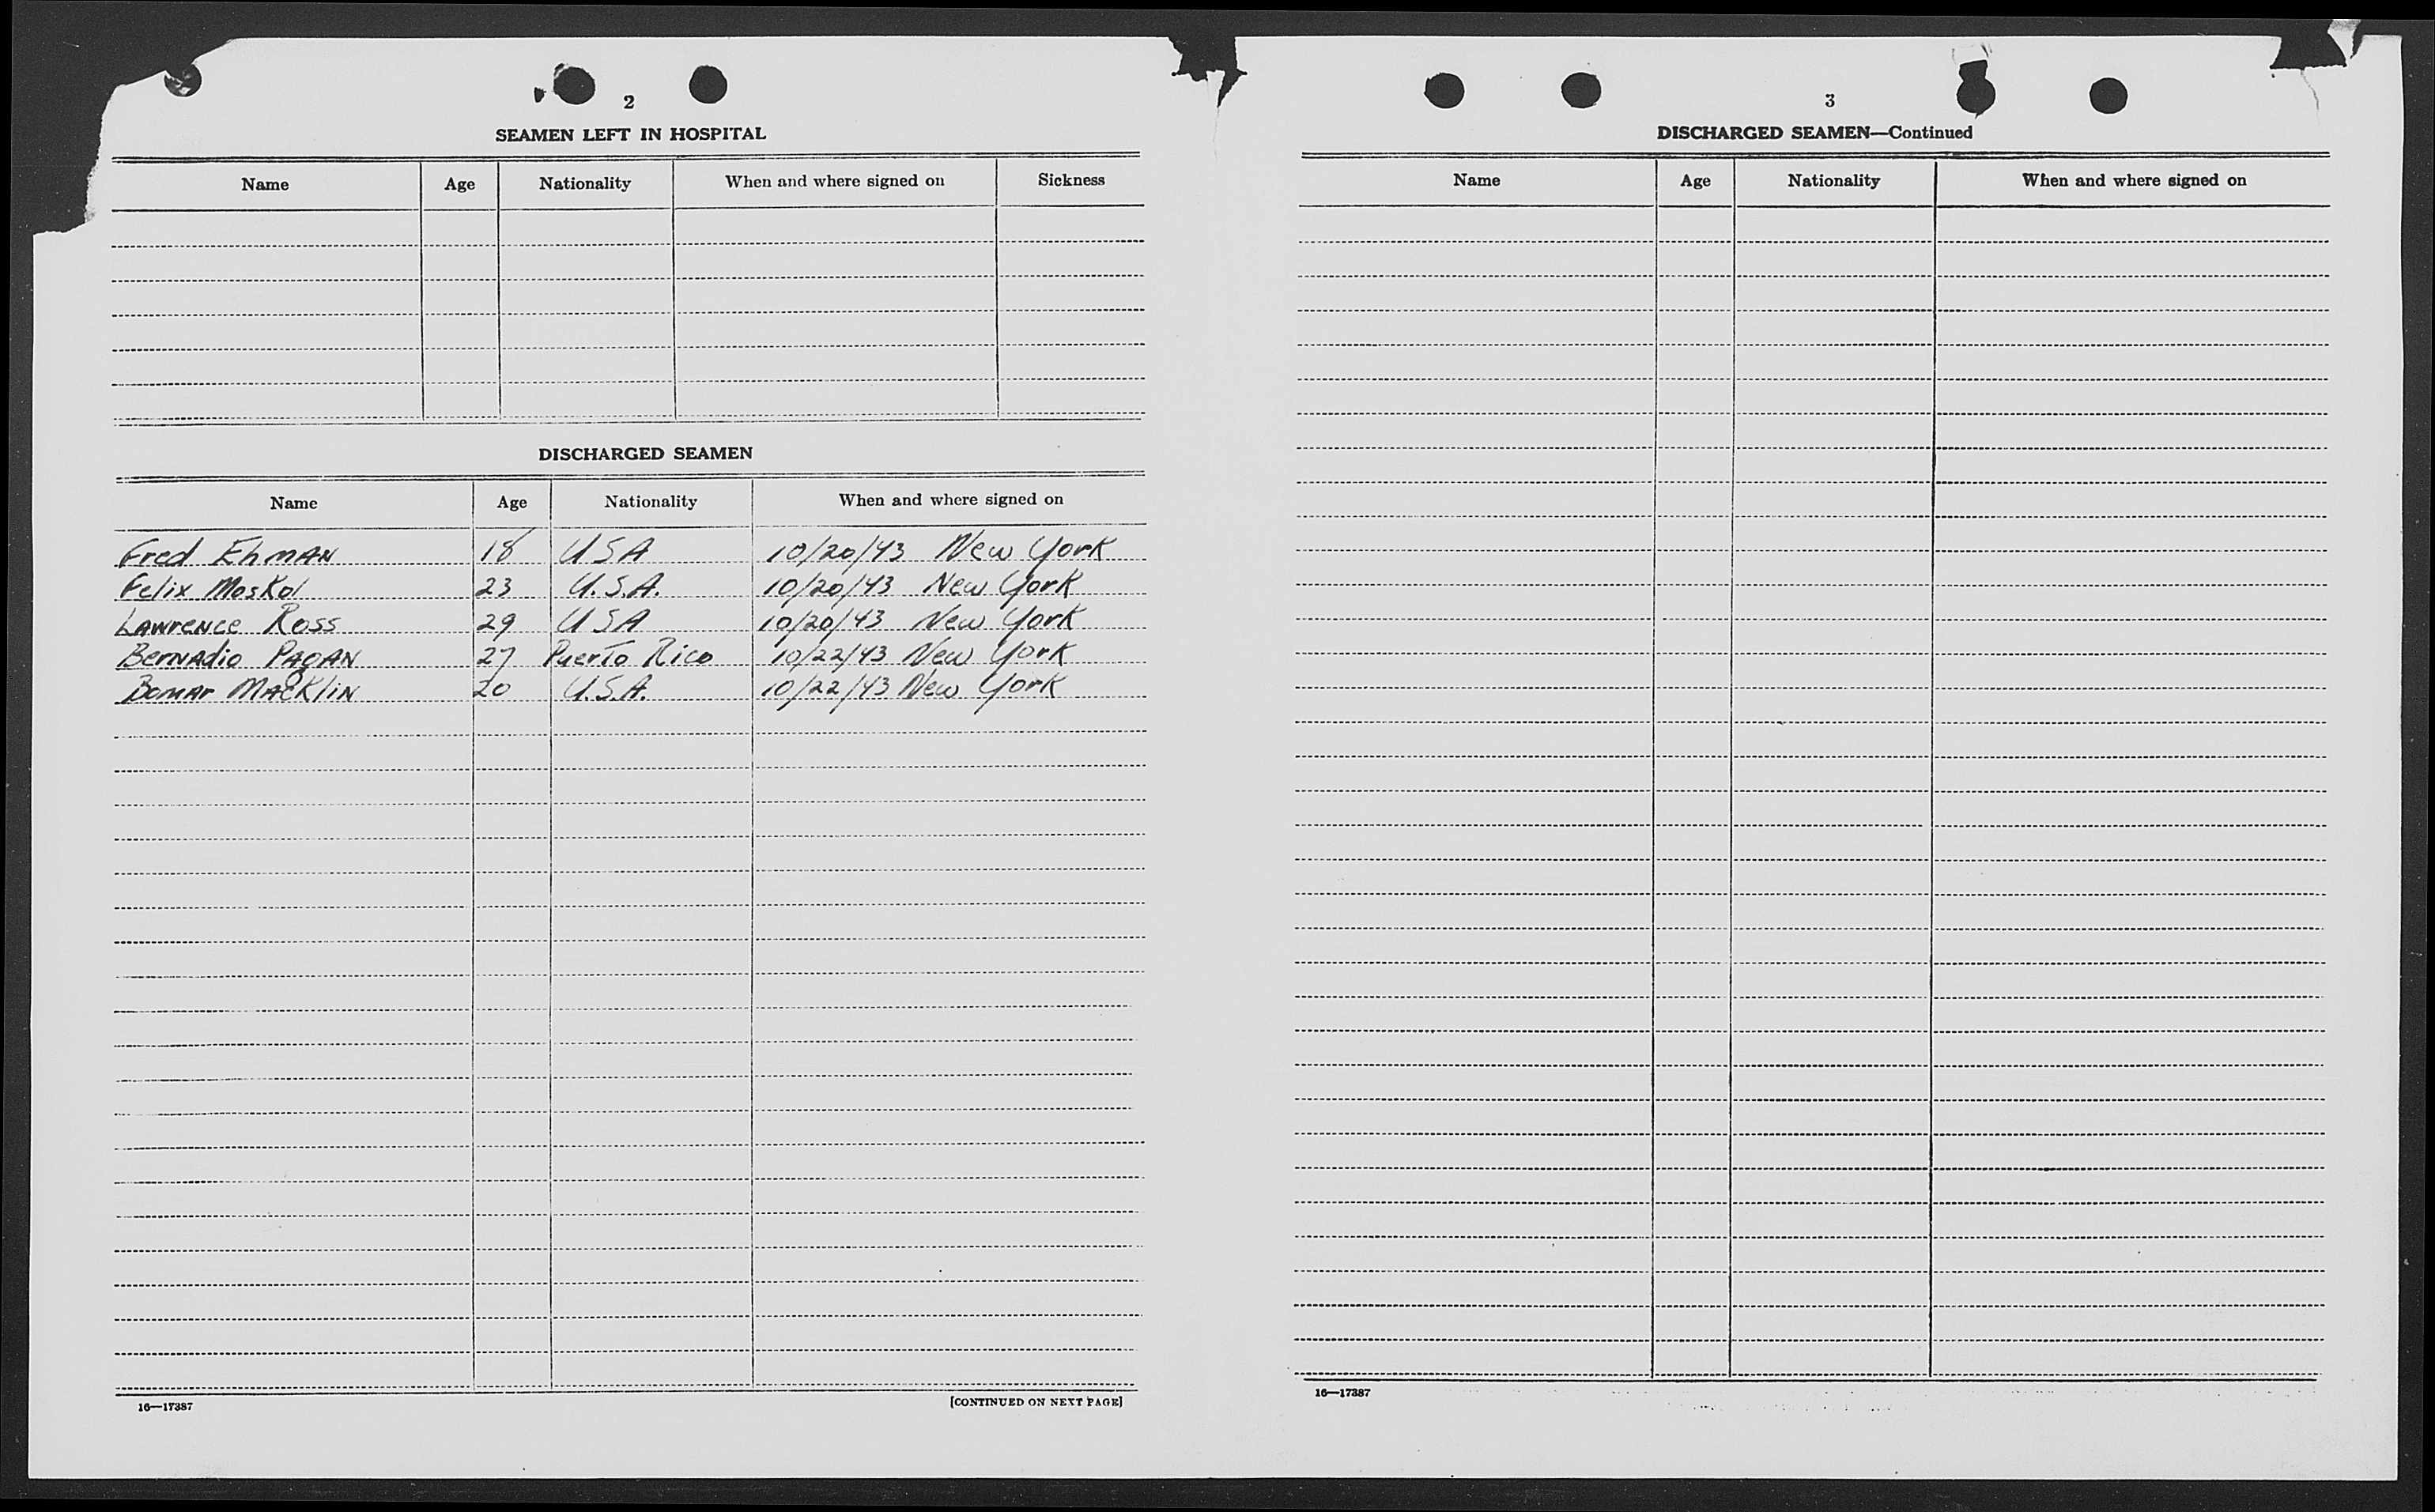 2
SEAMEN LEFT IN HOSPITAL
Name Age Nationality When and where signed on Sickness
DISCHARGED SEAMEN
Name Age Nationality When and where signed on
Fred Ehman 18 USA 10/20/43 New York
Felix Moskol 23 U.S.A. 10/20/43 New York
Lawrence Ross 29 USA 10/20/43 New York
Bernadio Pagan 27 Puerto Rico 10/22/43 New York
Bomar Macklin 20 U.S.A. 10/22/43 New York
16—17387 [CONTINUED ON NEXT PAGE]
3
DISCHARGED SEAMEN—Continued
Name Age Nationality When and where signed on
16—17387